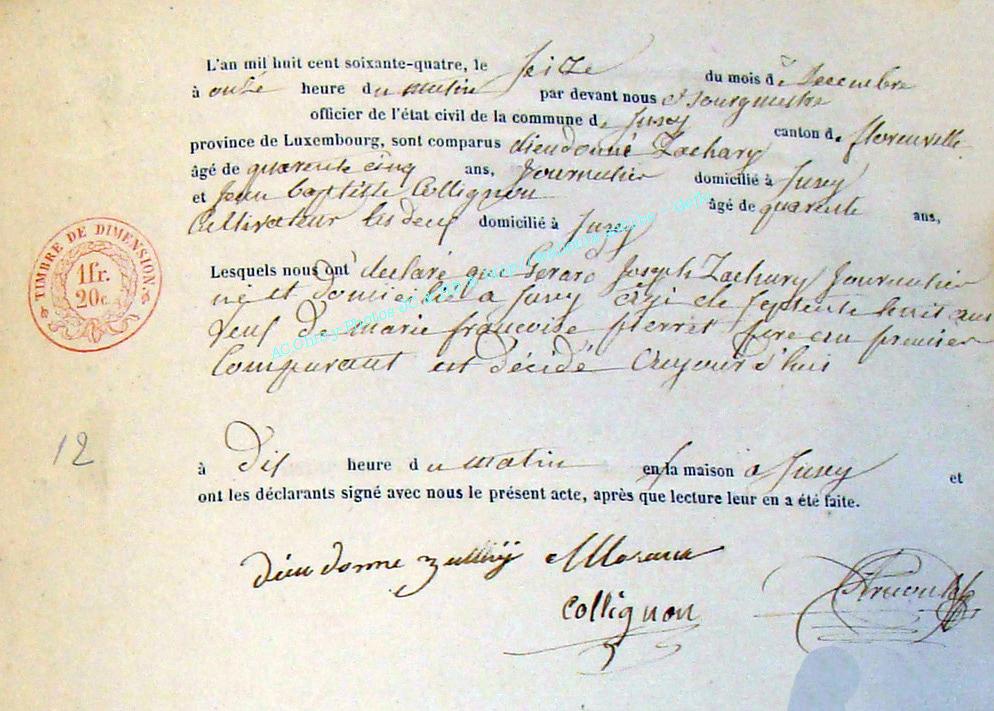 L'an mil huit cent soixante-quatre, le Seize du mois de Decembre
à onze heure du matin par devant nous Bourgmestre
officier de l'état civil de la commune de Jusey canton de florenville
province de Luxembourg, sont comparus dieudonné Zachary
âgé de quarente cinq ans, Journalier domicilié à Jusey
et Jean baptiste Collignon âgé de quarente ans,
Cultivateur les deux domicilié à Jusey
Lesquels nous ont déclaré que Gerard Joseph Zachary Journalier
né et domicilié a Jusey âgé de septente huit ans
veuf de marie françoise pierret père au premier
Comparant est décidé aujourd'hui
à Dix heure du matin en la maison a Jusey et
ont les déclarants signé avec nous le présent acte, après que lecture leur en a été faite.
dieudonne
Collignon
TIMBRE DE DIMENSION
1 fr.
20 c.
12